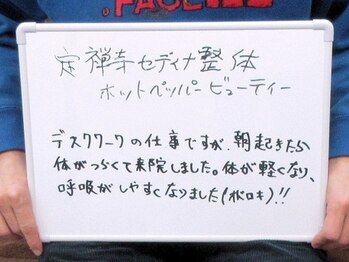 FACE
定禅寺セディナ整体
ホットペッパービューティー
デスクワークの仕事ですが、朝起きたら
体がつらくて来院しました。体が軽くなり、
呼吸がしやすくなりました(ボロキ)!!